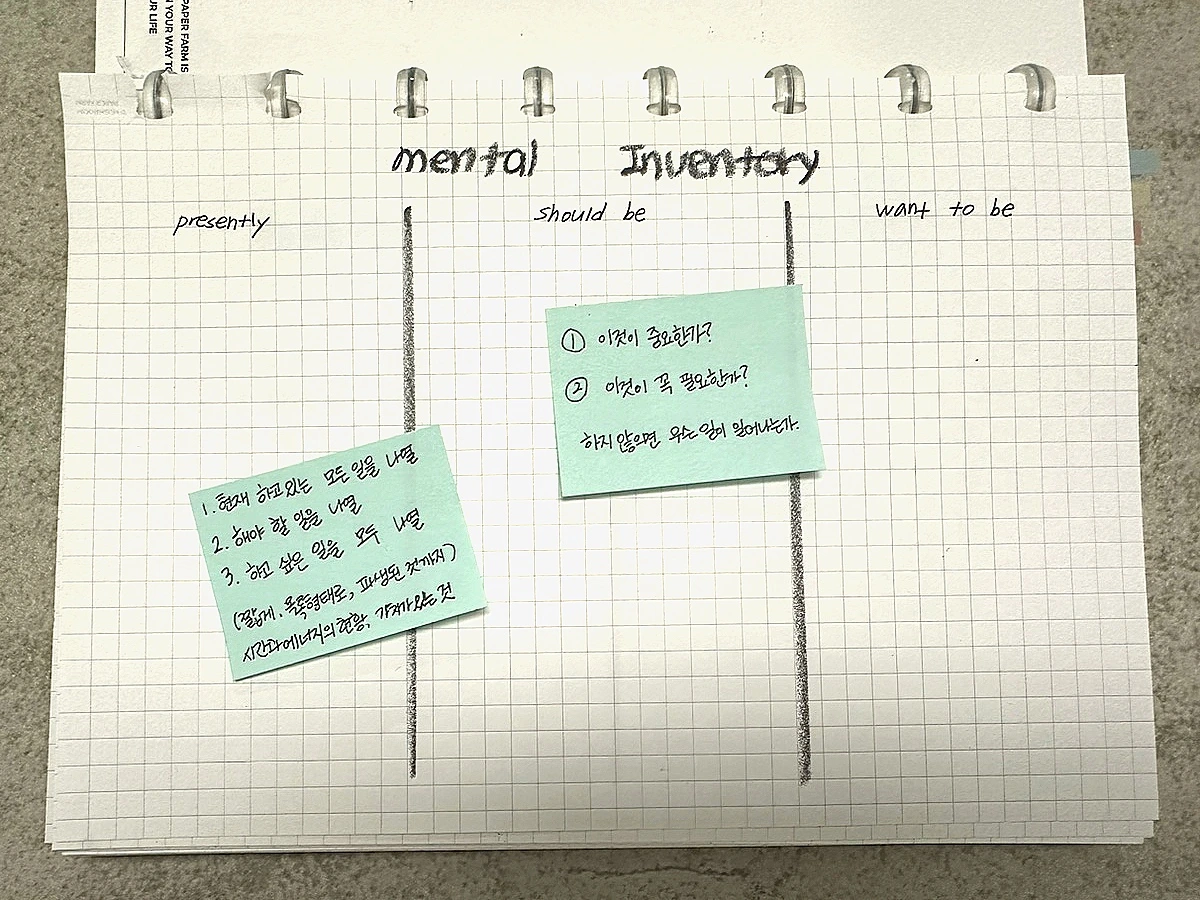 PAPER FARM IS
N YOUR WAY TO
UR LIFE
mental Inventory
presently
should be
want to be
① 이것이 중요한가?
② 이것이 꼭 필요한가?
하지 않으면 무슨 일이 일어나는가.
1. 현재 하고 있는 모든 일을 나열
2. 해야 할 일을 나열
3. 하고 싶은 일을 모두 나열
(짧게. 목록형태로, 파생된 것까지)
시간과 에너지의 현황, 가치가 있는 것